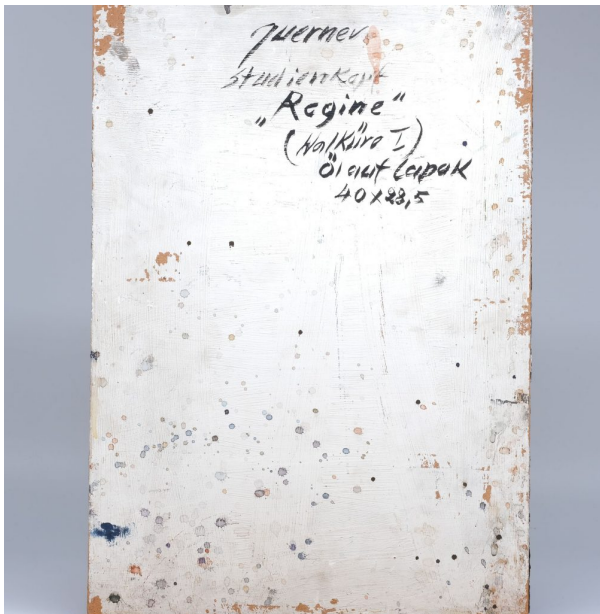 Querner
Studienkopf
„Regine“
(Walküre I)
Öl auf Lapak
40 x 28,5